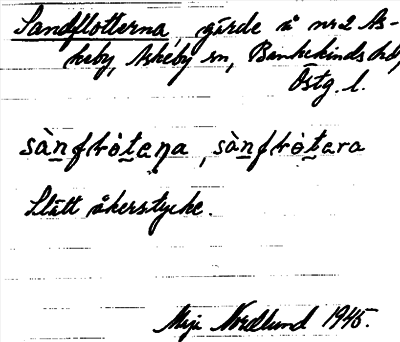 Sandflotterna, gärde å nr 2 As-
keby, Askeby sn, Bankekinds hd,
Östg. l.
sànfròtena, sànfròtara
Slätt åkerstycke.
Maja Nordlund 1945.